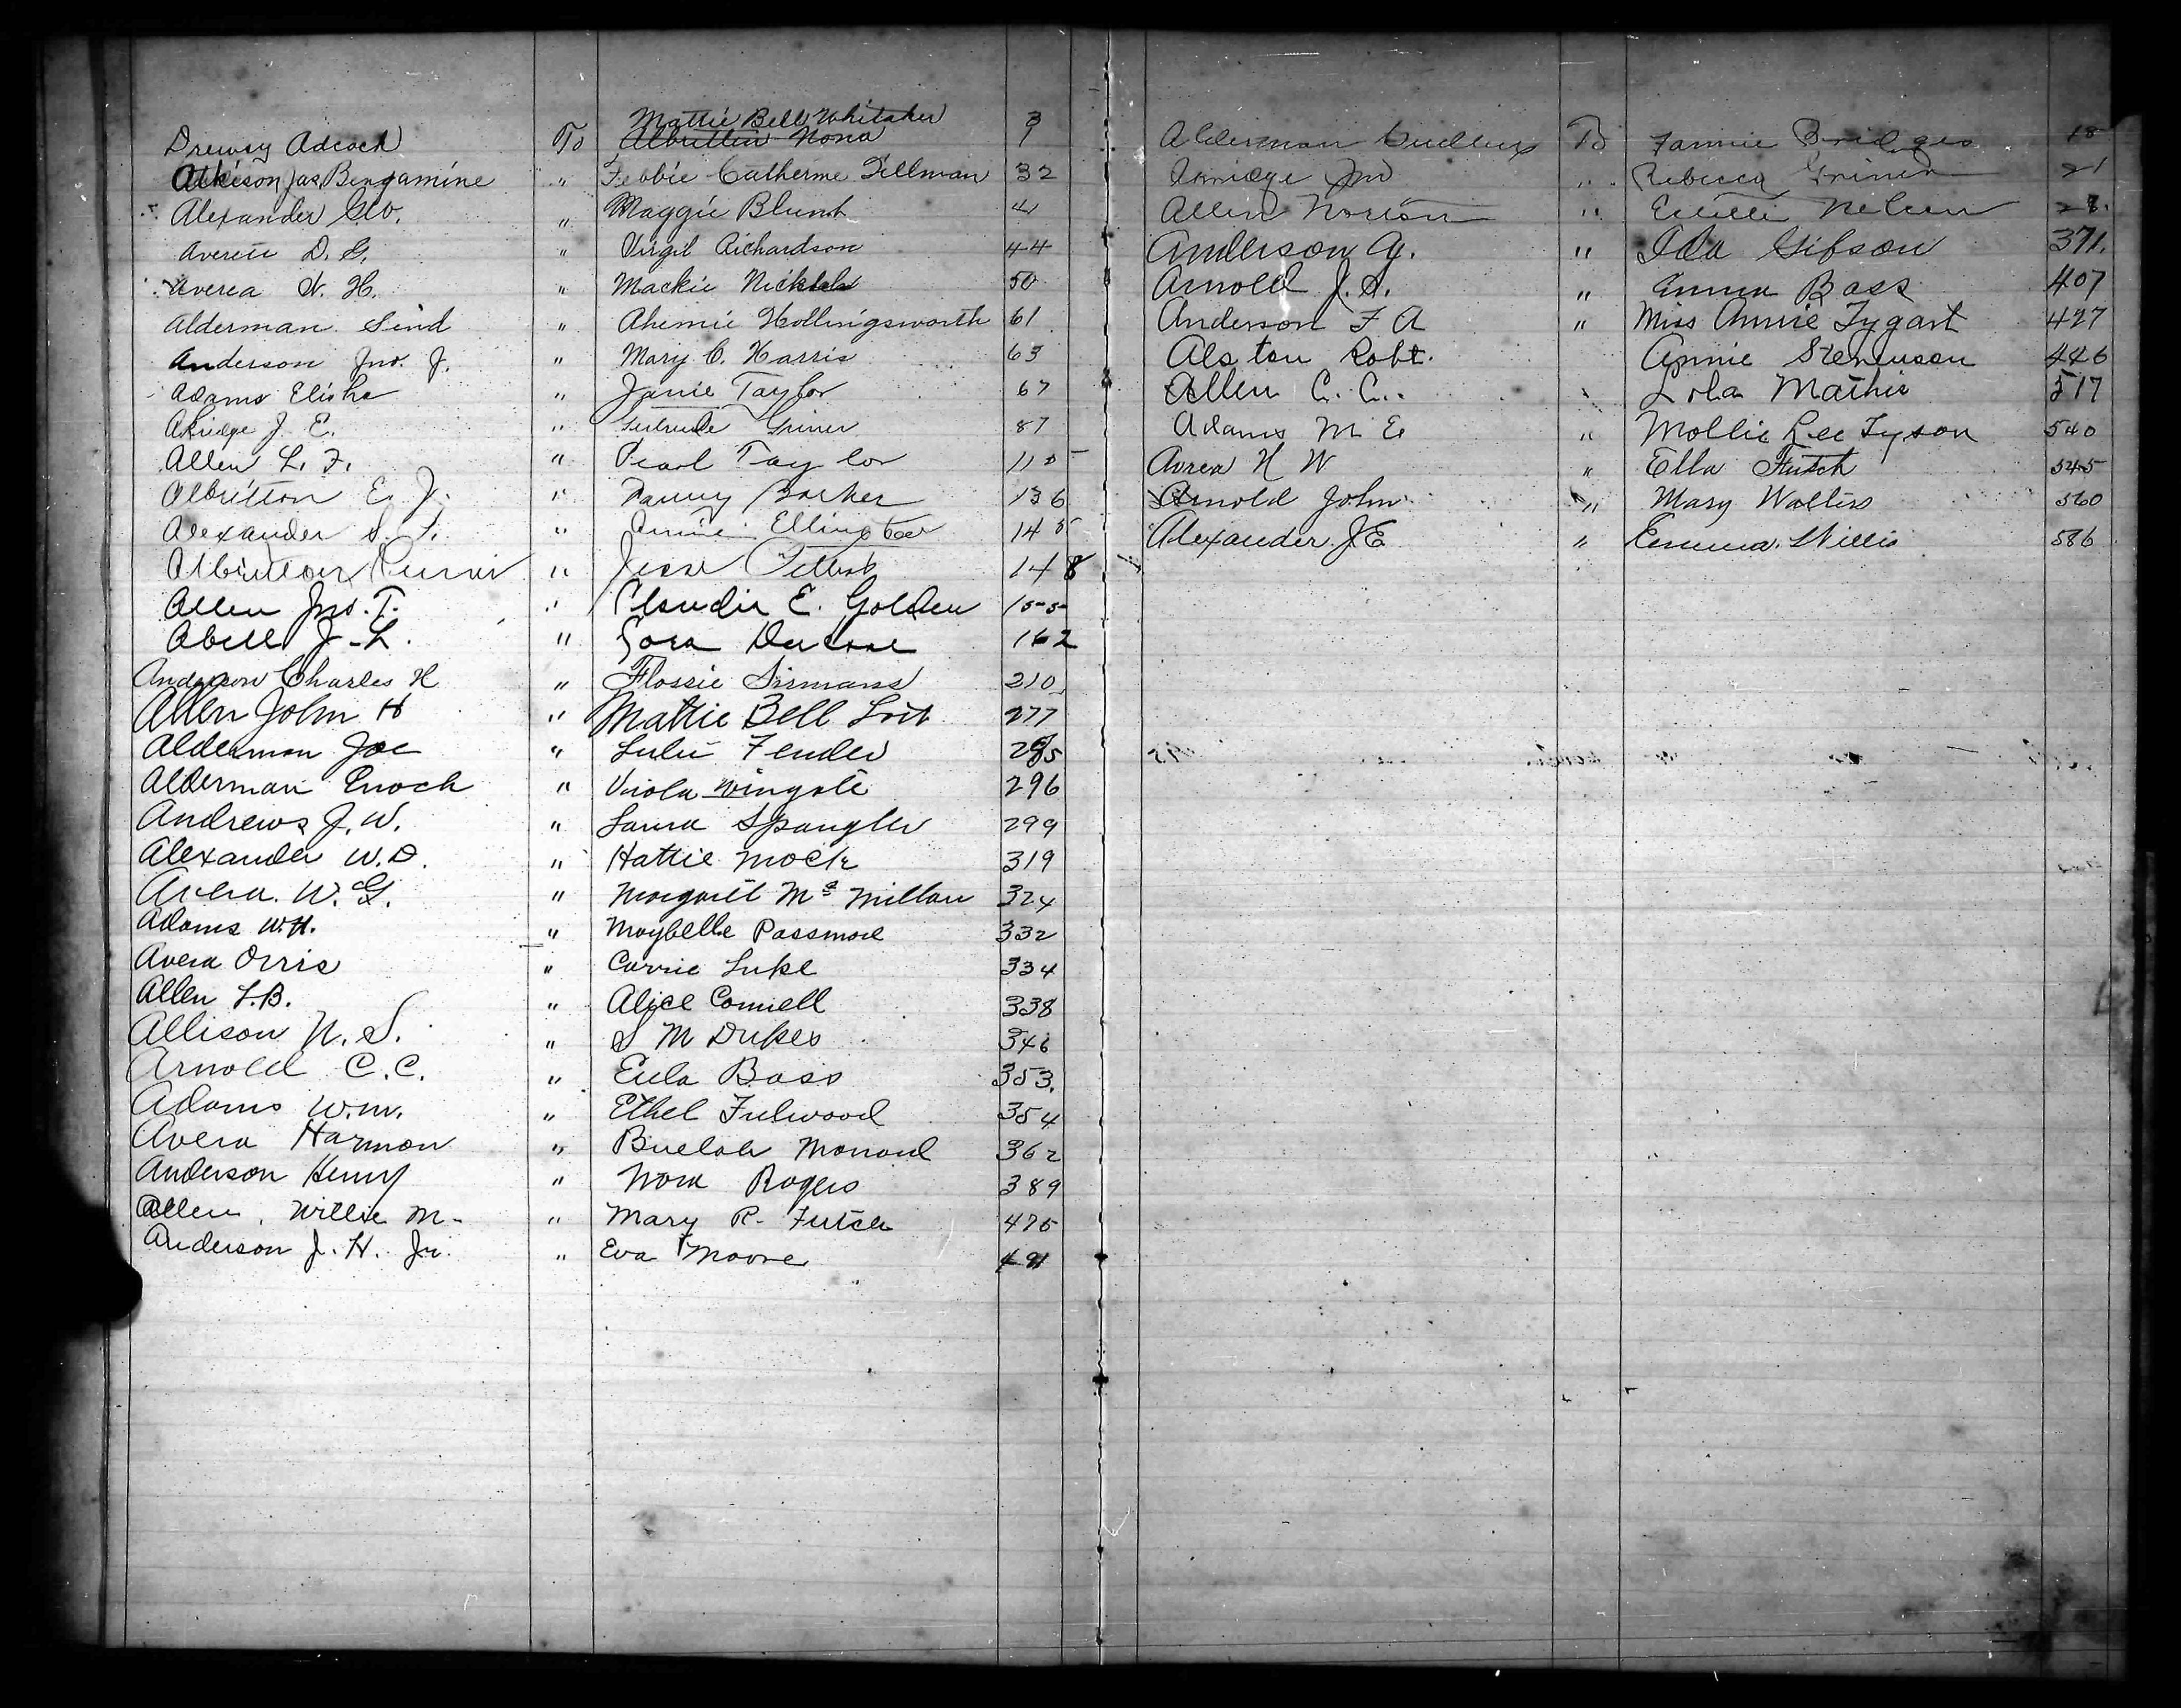 Mattie Bell Whitaker 3
Drewsy Adcock To Albritten Nona 1
Atkison Jas. Bengamine " Febbie Catherine Tillman 32
Alexander Geo. " Maggie Blunt 4
Averett D. G. " Virgil Richardson 44
Averea N. H. " Mackie 50
Alderman Sind " Ahimie Hollingsworth 61
Anderson Jno. J. " Mary C. Harris 63
Adams Elisha " Janie Taylor 67
Akridge J. E. " Gertrude Griner 87
Allen L. F. " Pearl Taylor 110
Albritton E. J. " Barker 136
Alexander S. T. " Annie 145
Albritton " Jesse 148
Allen Jno. T. " Claudia E. Golden 155
Abell J. L. " Cora 162
Anderson Charles H " Flossie Sirmans 210
Allen John H " Mattie Bell 277
Alderman Joe " Lula Fender 285
Alderman Enoch " Viola Wingate 296
Andrews J. W. " Laura Spangler 299
Alexander W. D. " Hattie Mock 319
Avera W. G. " Margaret Mc Millan 324
Adams W. H. " Maybelle Passmore 332
Avera Orris " Carrie Luke 334
Allen L. B. " Alice Connell 338
Allison N. S. " S M Dukes 346
Arnold C. C. " Eula Bass 353.
Adams Wm. " Ethel Fulwood 354
Avera Harmon " Buelah 362
Anderson Henry " Nora Rogers 389
Allen, Willie M. " Mary R. Futch 475
Anderson J. H. Jr. " Eva Moore 491
Alderman To Fannie Bridges 18
Akridge Jno " Rebecca Griner 21
Allen Norton " Estelle Nelson 28.
Anderson G. " Ida Gibson 371.
Arnold J. S. " Emma Bass 407
Anderson F A " Miss Annie Tygart 427
Alston Robt. Annie Stevenson 446
Allen C. C. " Lola Mathis 517
Adams M E " Mollie Lee Tyson 540
Avrea N W " Ella Futch 545
Arnold John " Mary Walters 560
Alexander J E " Emma Willis 586